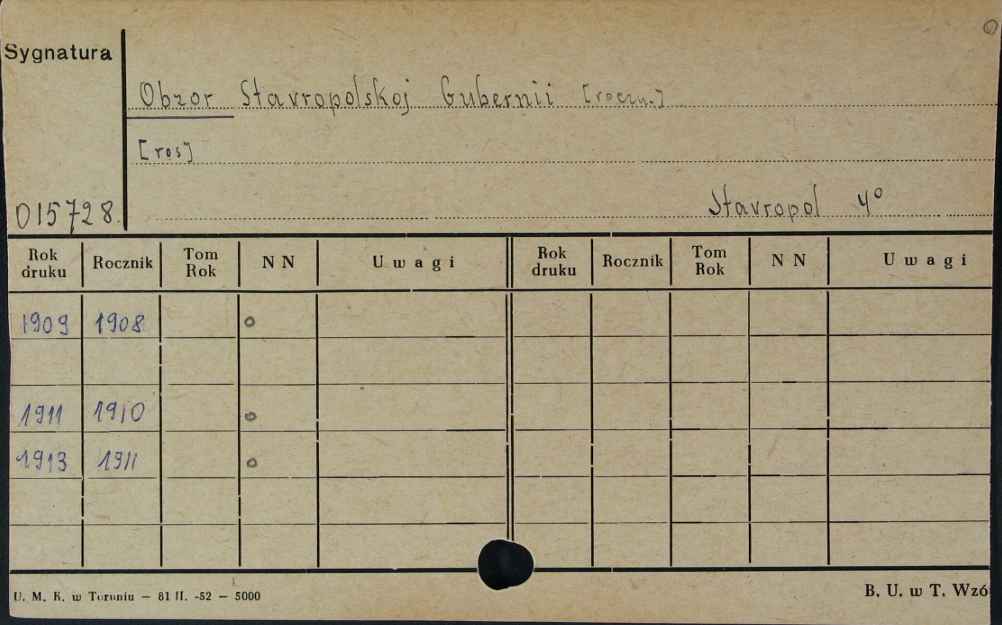 Sygnatura
Obzor Stavropolskoj Gubernii [roczn.]
[ros]
015728.
Stavropol 4°
Rok druku Rocznik Tom Rok NN Uwagi Rok druku Rocznik Tom Rok NN Uwagi
1909 1908 o
1911 1910 o
1913 1911 o
U. M. K. w Toruniu — 81 II. -52 — 5000
B. U. w T. Wzó